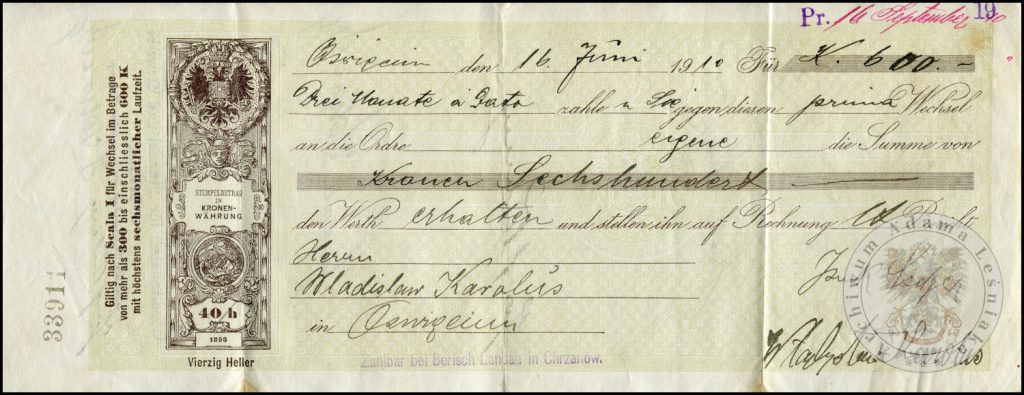 Pr. 16 September 19 10
Giltig nach Scala I für Wechsel im Betrage
von mehr als 300 bis einschliesslich 600 K
mit höchstens sechsmonatlicher Laufzeit.
33911
STEMPELBETRAG
IN
KRONEN-
WÄHRUNG
40/h
1896
Vierzig Heller
Oswięcim den 16. Juni 1910 Für K. 600.-
Drei Monate a Dato zahle Sie gegen diesen prima Wechsel
an die Ordre eigene die Summe von
Kronen Sechshundert
den Werth erhalten und stellen ihn auf Rechnung
Herrn
Wladislaw Karolus
in Oswięcim
Zahlbar bei Berisch Landau in Chrzanów.
Archiwum Adama Leśniak